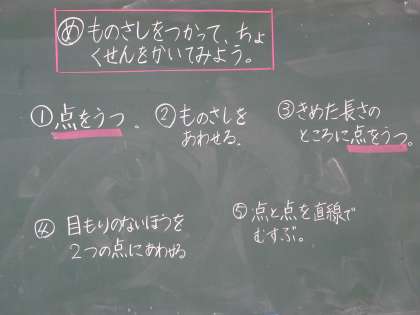 め ものさしをつかって、ちょ
くせんをかいてみよう。
① 点をうつ 。
② ものさしを
あわせる。
③ きめた長さの
ところに点をうつ。
④ 目もりのないほうを
2つの点にあわせる
⑤ 点と点を直線で
むすぶ。